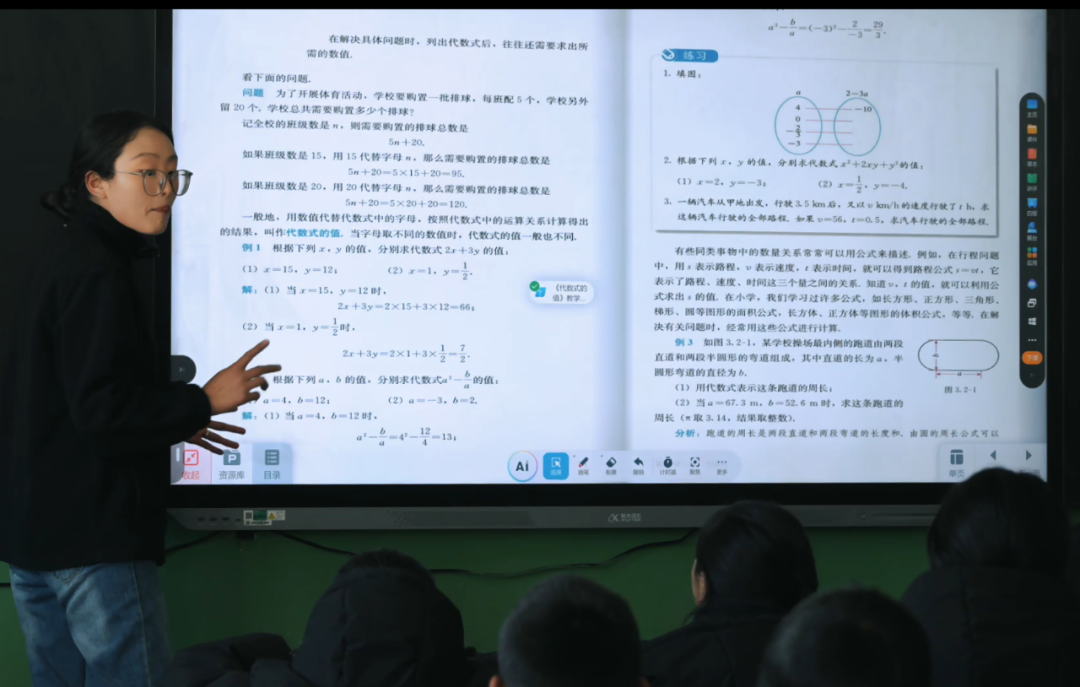 在解决具体问题时，列出代数式后，往往还需要求出所
需的数值.
看下面的问题.
问题 为了开展体育活动，学校要购置一批排球，每班配 5 个，学校另外
留 20 个. 学校总共需要购置多少个排球?
记全校的班级数是 n，则需要购置的排球总数是
5n+20.
如果班级数是 15，用 15 代替字母 n，那么需要购置的排球总数是
5n+20=5×15+20=95.
如果班级数是 20，用 20 代替字母 n，那么需要购置的排球总数是
5n+20=5×20+20=120.
一般地，用数值代替代数式中的字母，按照代数式中的运算关系计算得出
的结果，叫作代数式的值. 当字母取不同的数值时，代数式的值一般也不同.
例 1 根据下列 x，y 的值，分别求代数式 2x+3y 的值：
(1) x=15，y=12； (2) x=1，y=1/2.
解：(1) 当 x=15，y=12 时，
2x+3y=2×15+3×12=66；
(2) 当 x=1，y=1/2时，
2x+3y=2×1+3×1/2=7/2.
根据下列 a，b 的值，分别求代数式a²-b/a的值：
a=4，b=12； (2) a=-3，b=2.
解：(1) 当 a=4，b=12 时，
a²-b/a=4²-12/4=13；
收起 资源库 目录
《代数式的
值》教学...
a²-b/a=(-3)²-2/-3=29/3.
练习
1. 填图：
a 2-3a
4 -10
0
-3
2. 根据下列 x，y 的值，分别求代数式 x²+2xy+y²的值：
(1) x=2，y=-3； (2) x=1/2，y=-4.
3. 一辆汽车从甲地出发，行驶 3.5 km 后，又以 v km/h 的速度行驶了 t h，求
这辆汽车行驶的全部路程. 如果 v=56，t=0.5，求汽车行驶的全部路程.
有些同类事物中的数量关系常常可以用公式来描述. 例如，在行程问题
中，用 s 表示路程，v 表示速度，t 表示时间，就可以得到路程公式 s=vt，它
表示了路程、速度、时间这三个量之间的关系. 知道 v，t 的值，就可以利用公
式求出 s 的值. 在小学，我们学习过许多公式，如长方形、正方形、三角形、
梯形、圆等图形的面积公式，长方体、正方体等图形的体积公式，等等. 在解
决有关问题时，经常用这些公式进行计算.
例 3 如图 3.2-1，某学校操场最内侧的跑道由两段
直道和两段半圆形的弯道组成，其中直道的长为 a，半
圆形弯道的直径为 b.
(1) 用代数式表示这条跑道的周长；
(2) 当 a=67.3 m，b=52.6 m 时，求这条跑道的
周长 (π 取 3.14，结果取整数).
a
图 3.2-1
分析：跑道的周长是两段直道和两段弯道的长度和. 由圆的周长公式可以
Ai 选择 画笔 计时器 更多
单页
下课